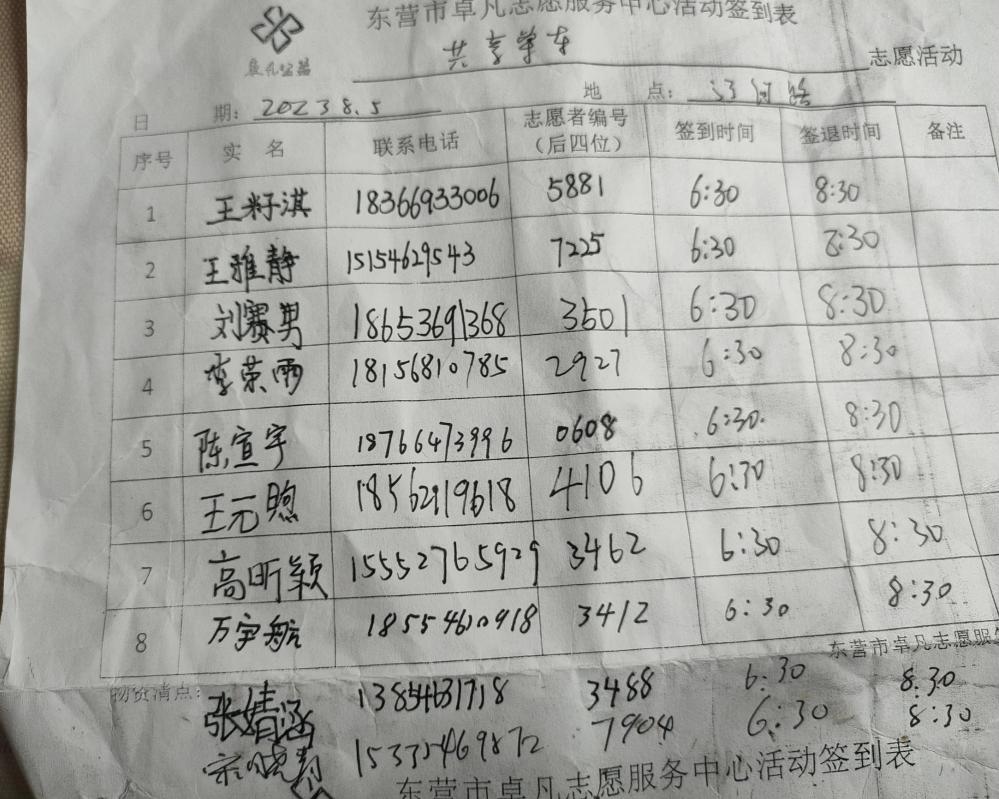 东营市卓凡志愿服务中心活动签到表
共享单车 志愿活动
日 期: 2023 8.5 地 点:
序号 实 名 联系电话 志愿者编号（后四位） 签到时间 签退时间 备注
1 王籽淇 18366933006 5881 6:30 8:30
2 王雅静 15154629543 7225 6:30 8:30
3 刘赛男 18653691368 3501 6:30 8:30
4 李荣雨 18156810785 2927 6:30 8:30
5 陈宣宇 18766473996 0608 6:30 8:30
6 王元煦 18562919618 4106 6:30 8:30
7 高昕颖 15552765929 3462 6:30 8:30
8 万宇航 18554610918 3412 6:30 8:30
东营市卓凡志愿服
物资清点:
张婧涵 3488 6:30 8:30
15335469872 7904 6:30 8:30
东营市卓凡志愿服务中心活动签到表